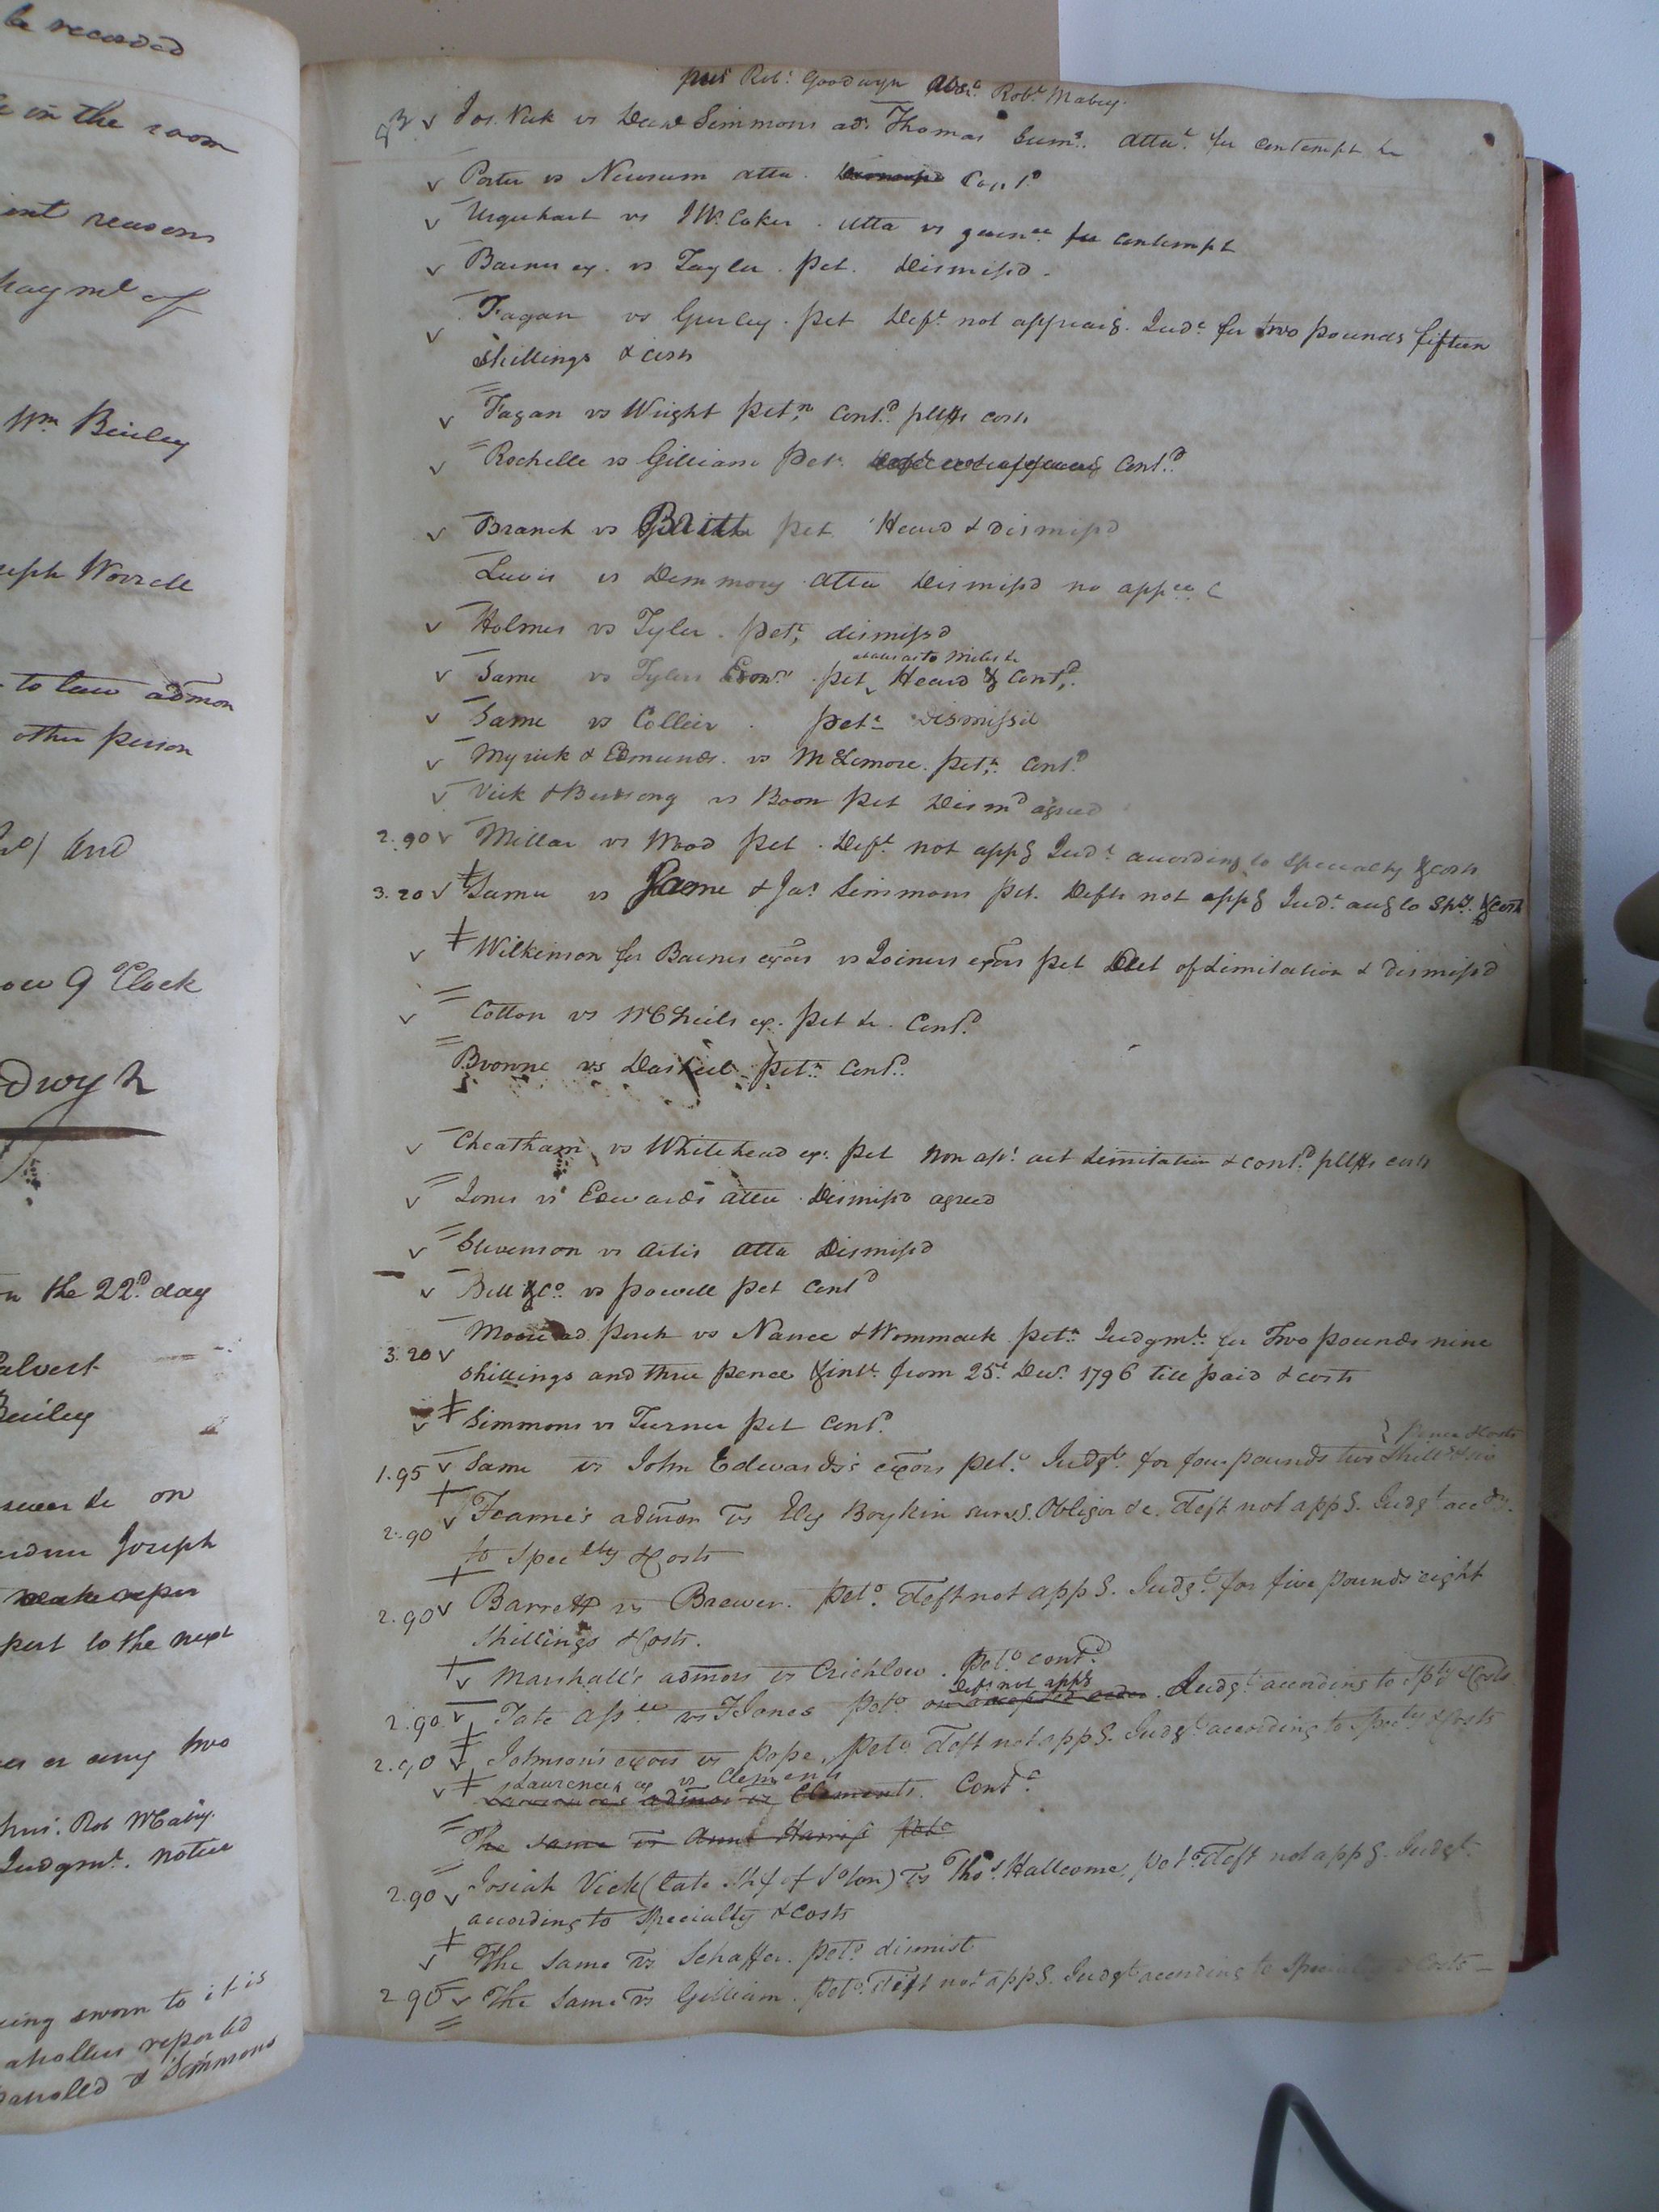 be recorded
in the room
ent reasons
paymt of
Wm Beiley
eph Worrell
to law admon
other person
and
ow 9 oClock
dwyn
on the 22d day
Calvert
Beiley
on
Joseph
pert to the next
or any two
Rob Mabry.
Judgmt. notice
eing sworn to it is
reported
& Simmons
pres Robt Goodwyn abst Robt Mabry.
Jos. Vick vs Simmons adx Thomas Sums. atta. for contempt &c
Porter vs Newsum atta. Dismissd Contd
Urquhart vs Coker. atta vs garnee for contempt
Barnes ex. vs Tayler. pet. Dismissd.
Fagan vs Gurley. pet Deft not appearg. Judt for two pounds fifteen
shillings & costs
Fagan vs Wright petn. Contd. pltffs costs
Rochelle vs Gilliam pet. deft not appearg Contd
Branch vs Britt pet Heard & dismissd
Lewis vs Demmory atta Dismissd no appce
Holmes vs Tyler. petn. dismissd
Same vs Tylers Exors pet abates as to Miles &c Heard & Contd.
Same vs Collier. petn Dismissd
Myrick & Edmunds. vs McLemore. petn. Contd
Vick & Bittsong vs Boon pet Dismd agreed
2.90 Millar vs Wood pet. Deft not appg Judt according to specialty & costs
3.20 Same vs Same & Jas Simmons pet. Defts not appg Judt accg to Spy. & costs
Wilkinson for Barnes exors vs Joiners exors pet act of Limitation & dismissd
Cotton vs McNeils ex. pet &c. Contd
Browne vs Daniel petn Contd.
Cheatham vs Whitehead ex. pet Non asst act Limitation & contd pltffs costs
Jones vs Edwards atta Dismissd agreed
Stevenson vs Artis atta Dismissd
Bell & Co. vs powell pet Contd
Moore ad. vs Nance & Wommack petn Judgmt. for Two pounds nine
3.20 shillings and three pence & intt. from 25t Decr. 1796 till paid & costs
Simmons vs Turner pet Contd.
1.95 Same vs John Edwards's exors peto. Judgt. for four pounds two Shillgs & six
pence & Costs
2.90 Fearne's admor vs Ely Boykin survg. Obligor &c. deft not appg. Judgt accdg.
to Specilty & Costs
2.90 Barrett vs Brewer. peto. deft not appg. Judgt. for five pounds eight
Shillings & Costs.
Marshall's admors vs Crichlow. Peto. contd
2.90 Tate assee vs F Jones Peto on accepted order deft not appg. Judgt according to Spty & Costs
2.90 Johnson's exors vs Pope, Peto deft not appg. Judgt according to Specty & Costs
Laurences ex vs Clements
Laurences admor vs Clements. Contd
The same vs Anne Harriss Peto
2.90 Josiah Vick (late Shf of So'ton) vs Thos. Hallcome, peto. deft not appg. Judgt.
according to Specialty & Costs
The same vs Schaffer. peto. dismist
2.90 The same vs Gilliam. Peto. deft not appg. Judgt according to Specialty & Costs